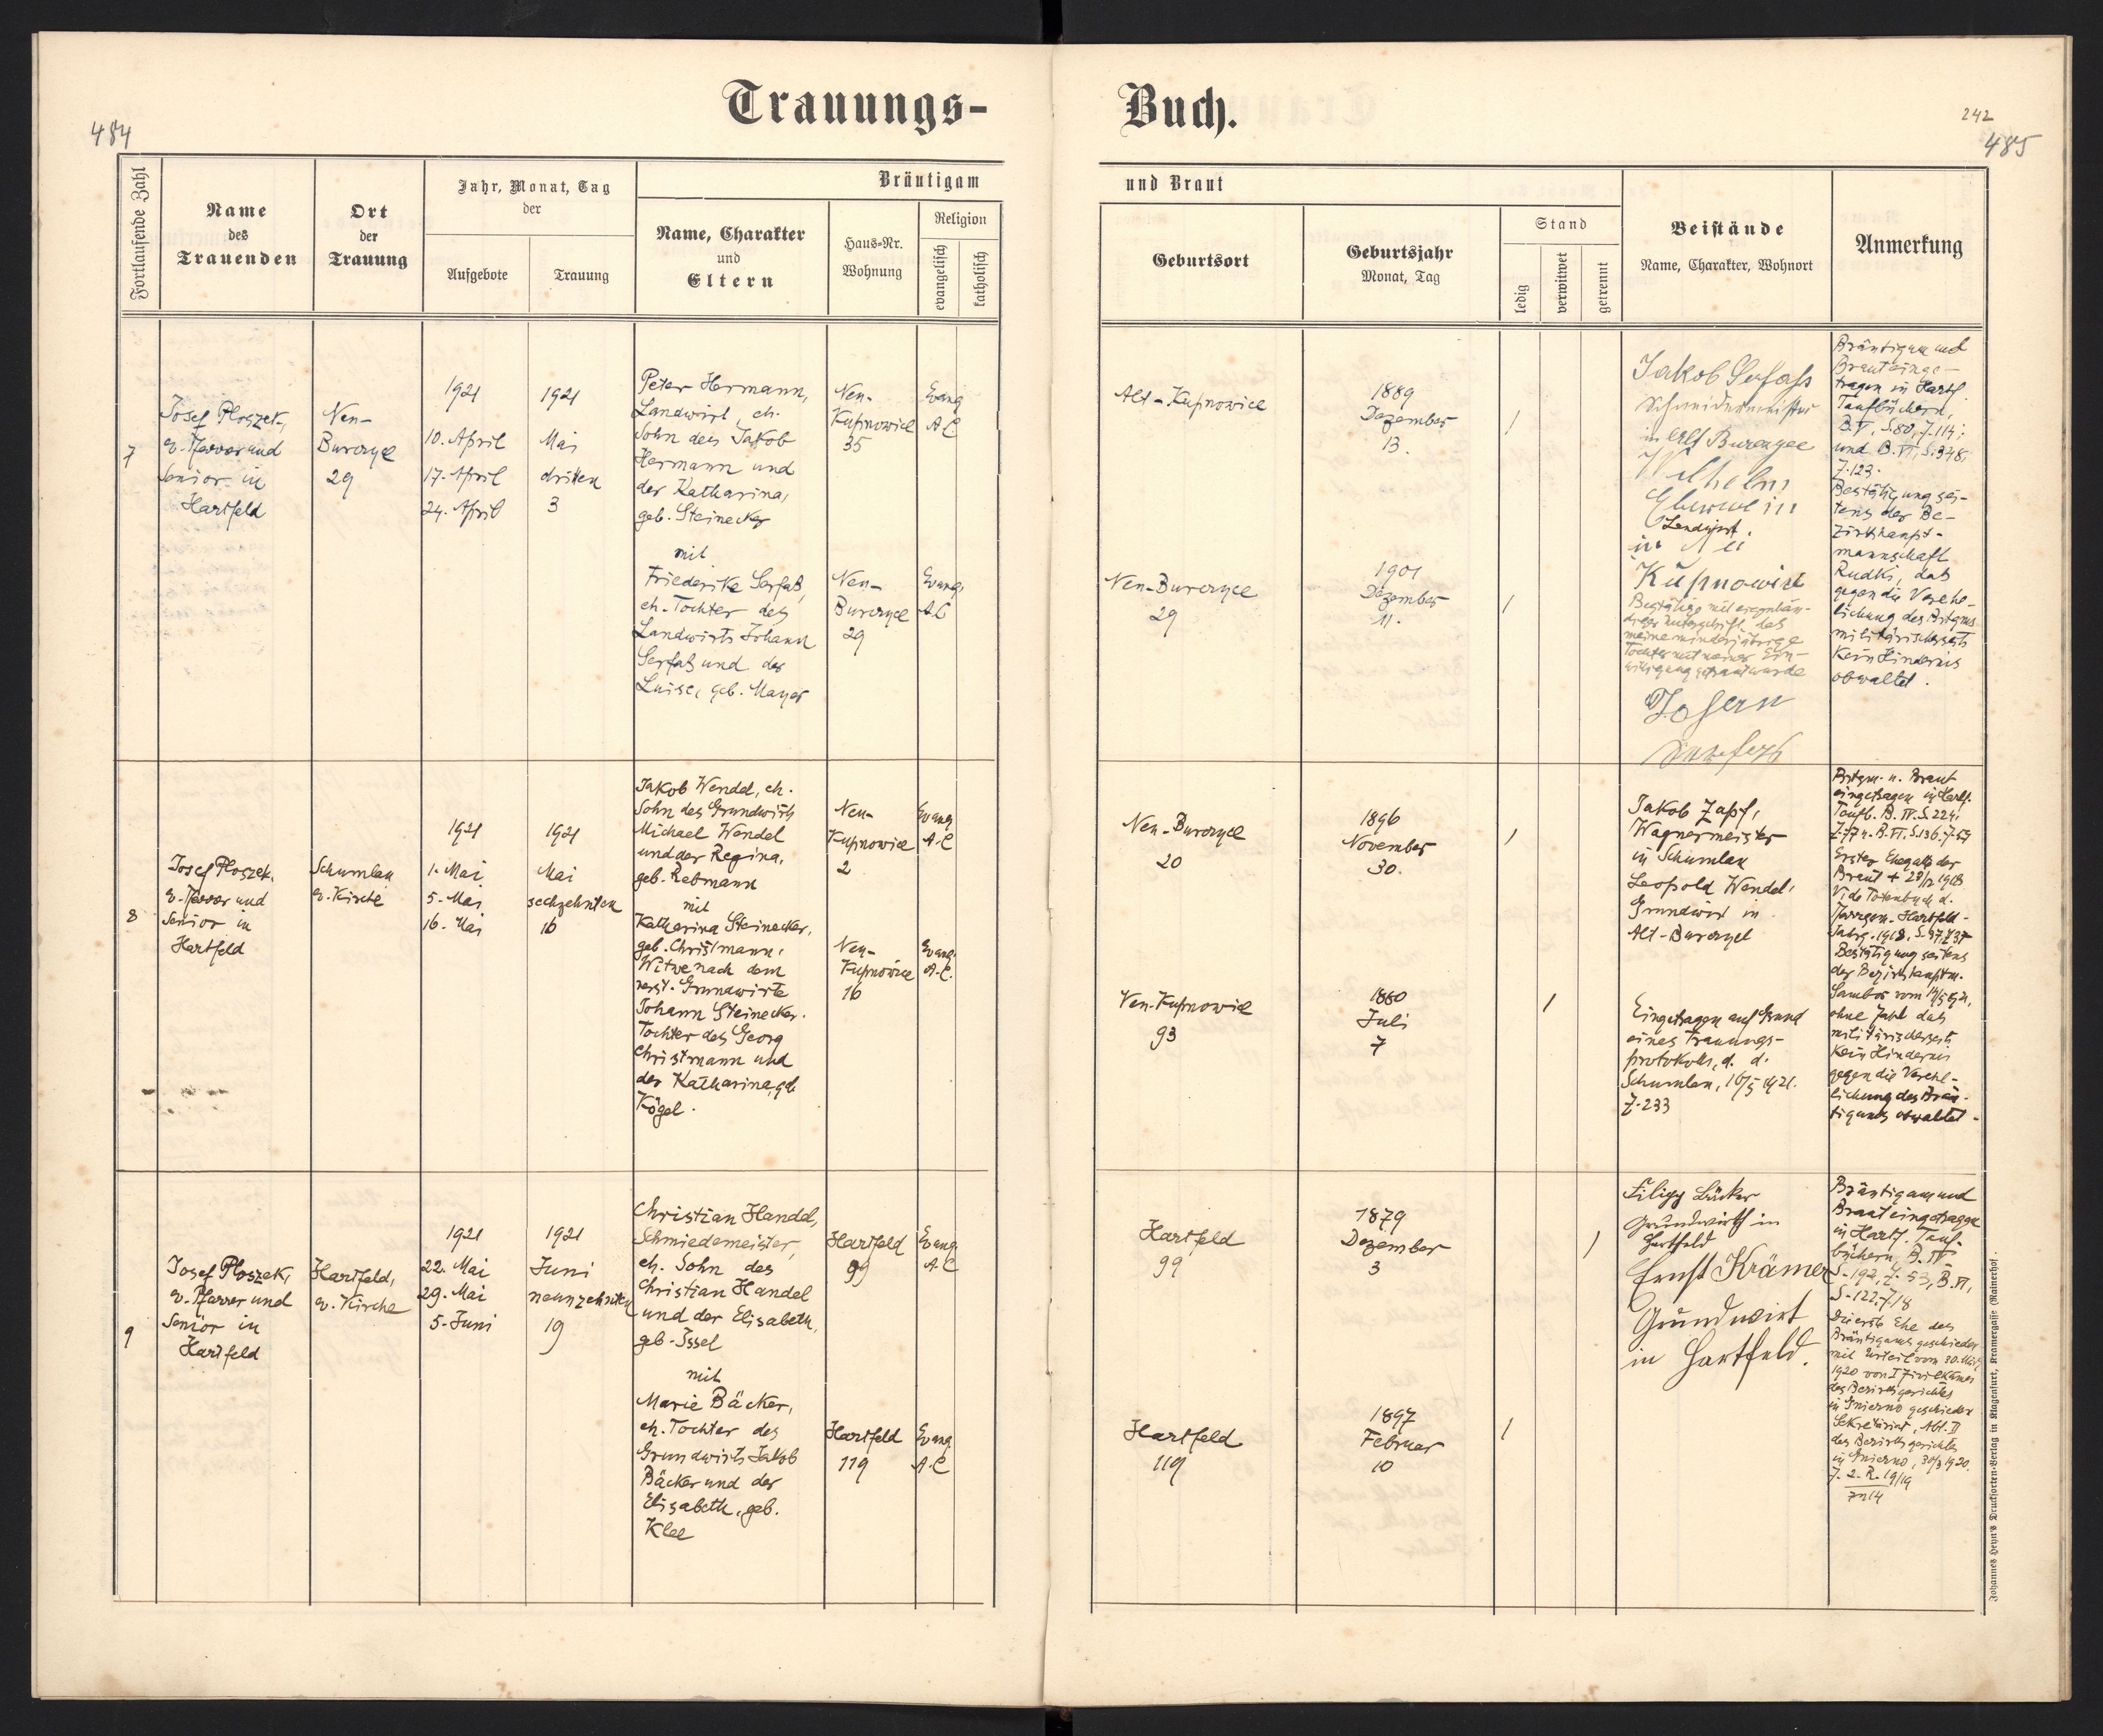 Trauungs-
Buch.
484
242
485
Fortlaufende Zahl
Name
des
Trauenden
Ort
der
Trauung
Jahr, Monat, Tag
der
Aufgebote
Trauung
Bräutigam
Name, Charakter
und
Eltern
Haus-Nr.
Wohnung
Religion
evangelisch
katholisch
und Braut
Geburtsort
Geburtsjahr
Monat, Tag
Stand
ledig
verwitwet
getrennt
Beistände
Name, Charakter, Wohnort
Anmerkung
7
Josef Ploszek,
e. Pfarrer und
Senior in
Hartfeld
Neu-
Burczyce
29
1921
10. April
17. April
24. April
1921
Mai
dritten
3
Peter Hermann,
Landwirt, eh.
Sohn des Jakob
Hermann und
der Katharina,
geb. Steinecker
mit
Friederike Serfaß,
eh. Tochter des
Landwirts Johann
Serfaß und der
Luise, geb. Mayer
Neu-
Kupnowice
35
Evang.
A.C.
Neu-
Burczyce
29
Evang.
A.C.
Alt-Kupnowice
1889
Dezember
13.
Neu-Burczyce
29
1901
Dezember
11.
Jakob Serfass
Schneidermeister
in Alt Burczyce
Wilhelm
Eberwein
Landwirt.
in Neu
Kupnowice
Bestätige mit eigenhän-
diger Unterschrift, daß
meine minderjährige
Tochter mit meiner Ein-
willigung getraut wurde
Bräutigam und
Braut einge-
tragen in Hartf.
Taufbüchern,
B.V. S.80, Z.114;
und B.VI, S.348,
Z.123.
Bestätigung sei-
tens der Be-
zirkshaupt-
mannschaft
Rudki, daß
gegen die Verehe-
lichung des Brtgms
militärischerseits
kein Hindernis
obwaltet.
8
Josef Ploszek,
e. Pfarrer und
Senior in
Hartfeld
Schumlau
e. Kirche
1921
1. Mai
5. Mai
16. Mai
1921
Mai
sechzehnten
16
Jakob Wendel, eh.
Sohn des Grundwirts
Michael Wendel
und der Regina,
geb. Rebmann
mit
Katharina Steinecker,
geb. Christmann,
Witwe nach dem
verst. Grundwirte
Johann Steinecker.
Tochter des Georg
Christmann und
der Katharina, geb.
Kögel.
Neu-
Kupnowice
2
Evang.
A.C.
Neu-
Kupnowice
16
Evang.
A.C.
Neu-Burczyce
20
1896
November
30.
Neu-Kupnowice
93
1880
Juli
7
Jakob Zapf,
Wagnermeister
in Schumlau
Leopold Wendel,
Grundwirt in
Alt-Burczyce
Eingetragen auf Grund
eines Trauungs-
protokolls, d. d.
Schumlau, 16/5 1921.
Z. 233
Brtgm. u. Braut
eingetragen in Hartf.
Erster Ehegatte der
Vide Totenbuch d.
Pfarrgem. Hartfeld-
Bestätigung seitens
der Bezirkshauptm.
ohne Zahl daß
militärischerseits
kein Hindernis
gegen die Vereh-
lichung des Bräu-
tigams obwaltet.
9
Josef Ploszek,
e. Pfarrer und
Senior in
Hartfeld
Hartfeld,
e. Kirche
1921
22. Mai
29. Mai
5. Juni
1921
Juni
neunzehnten
19
Christian Handel,
Schmiedemeister,
eh. Sohn des
Christian Handel
und der Elisabeth,
geb. Issel
mit
Marie Bäcker,
eh. Tochter des
Grundwirts Jakob
Bäcker und der
Elisabeth, geb.
Klee
Hartfeld
99
Evang.
A.C.
Hartfeld
119
Evang
A.C.
Hartfeld
99
1879
Dezember
3
Hartfeld
119
1897
Februar
10
Filipp Bäcker
Grundwirth in
Hartfeld
Ernst Krämer
Grundwirt
in Hartfeld.
Bräutigam und
Braut eingetragen
in Hartf. Tauf-
büchern, B. IV.
S. 192, Z. 53, B. VI,
S. 122, Z. 18
Die erste Ehe des
Bräutigams geschieden
mit Urteil vom 30. März
1920 von I Zivilkammer
des Bezirksgerichtes
in Gniezno geschieden
Sekretariat, Abt. II
des Bezirksgerichtes
in Gniezno, 30/3 1920.
Z. 2. R. 19/19
Johannes Heyn's Drucksorten-Verlag in Klagenfurt, Kramergasse (Rainerhof).